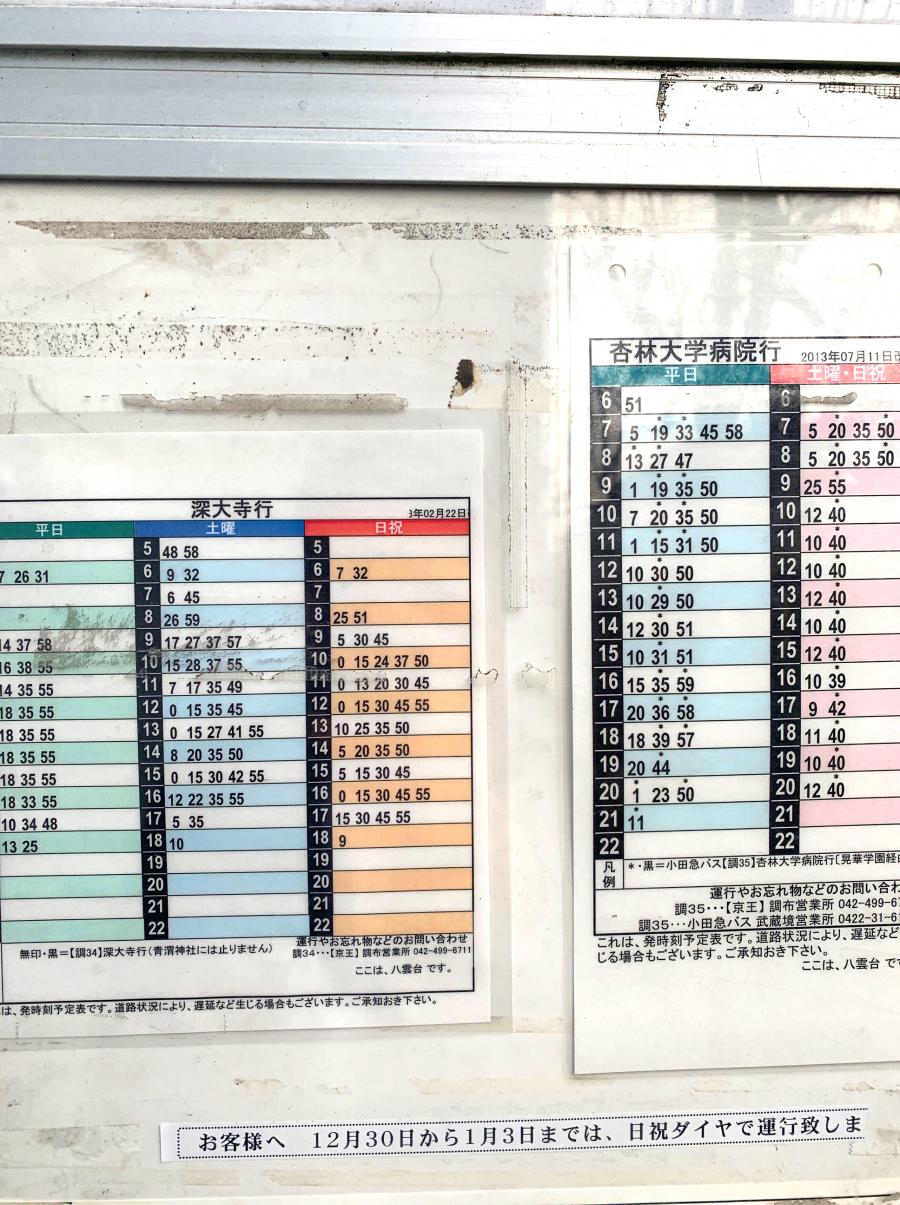 深大寺行
3年02月22日
平日 土曜 日祝
5 48 58 5
7 26 31 6 9 32 6 7 32
7 6 45 7
8 26 59 8 25 51
14 37 58 9 17 27 37 57 9 5 30 45
16 38 55 10 15 28 37 55 10 0 15 24 37 50
14 35 55 11 7 17 35 49 11 0 13 20 30 45
18 35 55 12 0 15 35 45 12 0 15 30 45 55
18 35 55 13 0 15 27 41 55 13 10 25 35 50
18 35 55 14 8 20 35 50 14 5 20 35 50
18 35 55 15 0 15 30 42 55 15 5 15 30 45
18 33 55 16 12 22 35 55 16 0 15 30 45 55
10 34 48 17 5 35 17 15 30 45 55
13 25 18 10 18 9
19 19
20 20
21 21
22 22
無印・黒=【調34】深大寺行(青渭神社には止りません)
運行やお忘れ物などのお問い合わせ
調34・・・【京王】調布営業所 042-499-6711
ここは、八雲台 です。
は、発時刻予定表です。道路状況により、遅延など生じる場合もございます。ご承知おき下さい。
杏林大学病院行
2013年07月11日改
平日 土曜・日祝
6 51 6
7 5 *19 *33 45 58 7 5 *20 35 *50
8 *13 *27 47 8 5 *20 35 *50
9 1 *19 *35 50 9 25 *55
10 7 *20 *35 50 10 12 *40
11 1 *15 *31 50 11 10 *40
12 10 *30 50 12 10 *40
13 10 *29 50 13 12 *40
14 12 *30 51 14 10 *40
15 10 *31 51 15 12 *40
16 15 *35 *59 16 10 *39
17 20 *36 *58 17 9 *42
18 18 *39 *57 18 11 *40
19 20 *44 19 10 *40
20 *1 23 *50 20 12 *40
21 *11 21
22 22
凡例 *・黒=小田急バス【調35】杏林大学病院行〔晃華学園経由
運行やお忘れ物などのお問い合わ
調35・・・【京王】調布営業所 042-499-67
調35・・・小田急バス 武蔵境営業所 0422-31-6
これは、発時刻予定表です。道路状況により、遅延など
じる場合もございます。ご承知おき下さい。
ここは、八雲台 です
お客様へ 12月30日から1月3日までは、日祝ダイヤで運行致しま